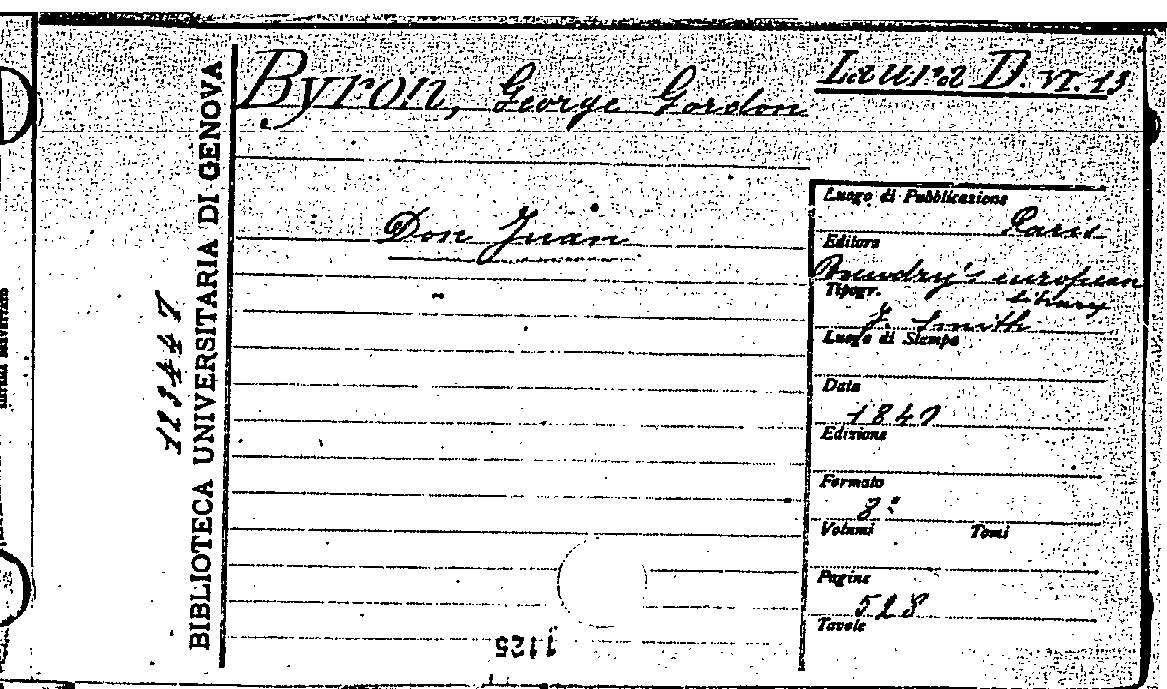 Byron, George Gordon
Laura D. VI. 13
Don Juan
Luogo di Pubblicazione
Paris
Editore
Baudry's european
library
Tipogr.
J. Smith
Luogo di Stampa
Data
1847
Edizione
Formato
8°
Volumi Tomi
Pagine
528
Tavole
BIBLIOTECA UNIVERSITARIA DI GENOVA
123447
1125